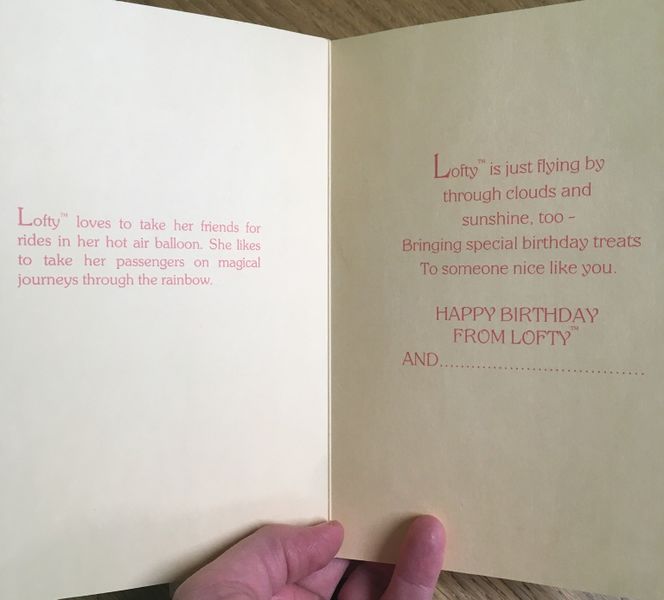 Lofty™ loves to take her friends for
rides in her hot air balloon. She likes
to take her passengers on magical
journeys through the rainbow.
Lofty™ is just flying by
through clouds and
sunshine, too -
Bringing special birthday treats
To someone nice like you.
HAPPY BIRTHDAY
FROM LOFTY™
AND...................................